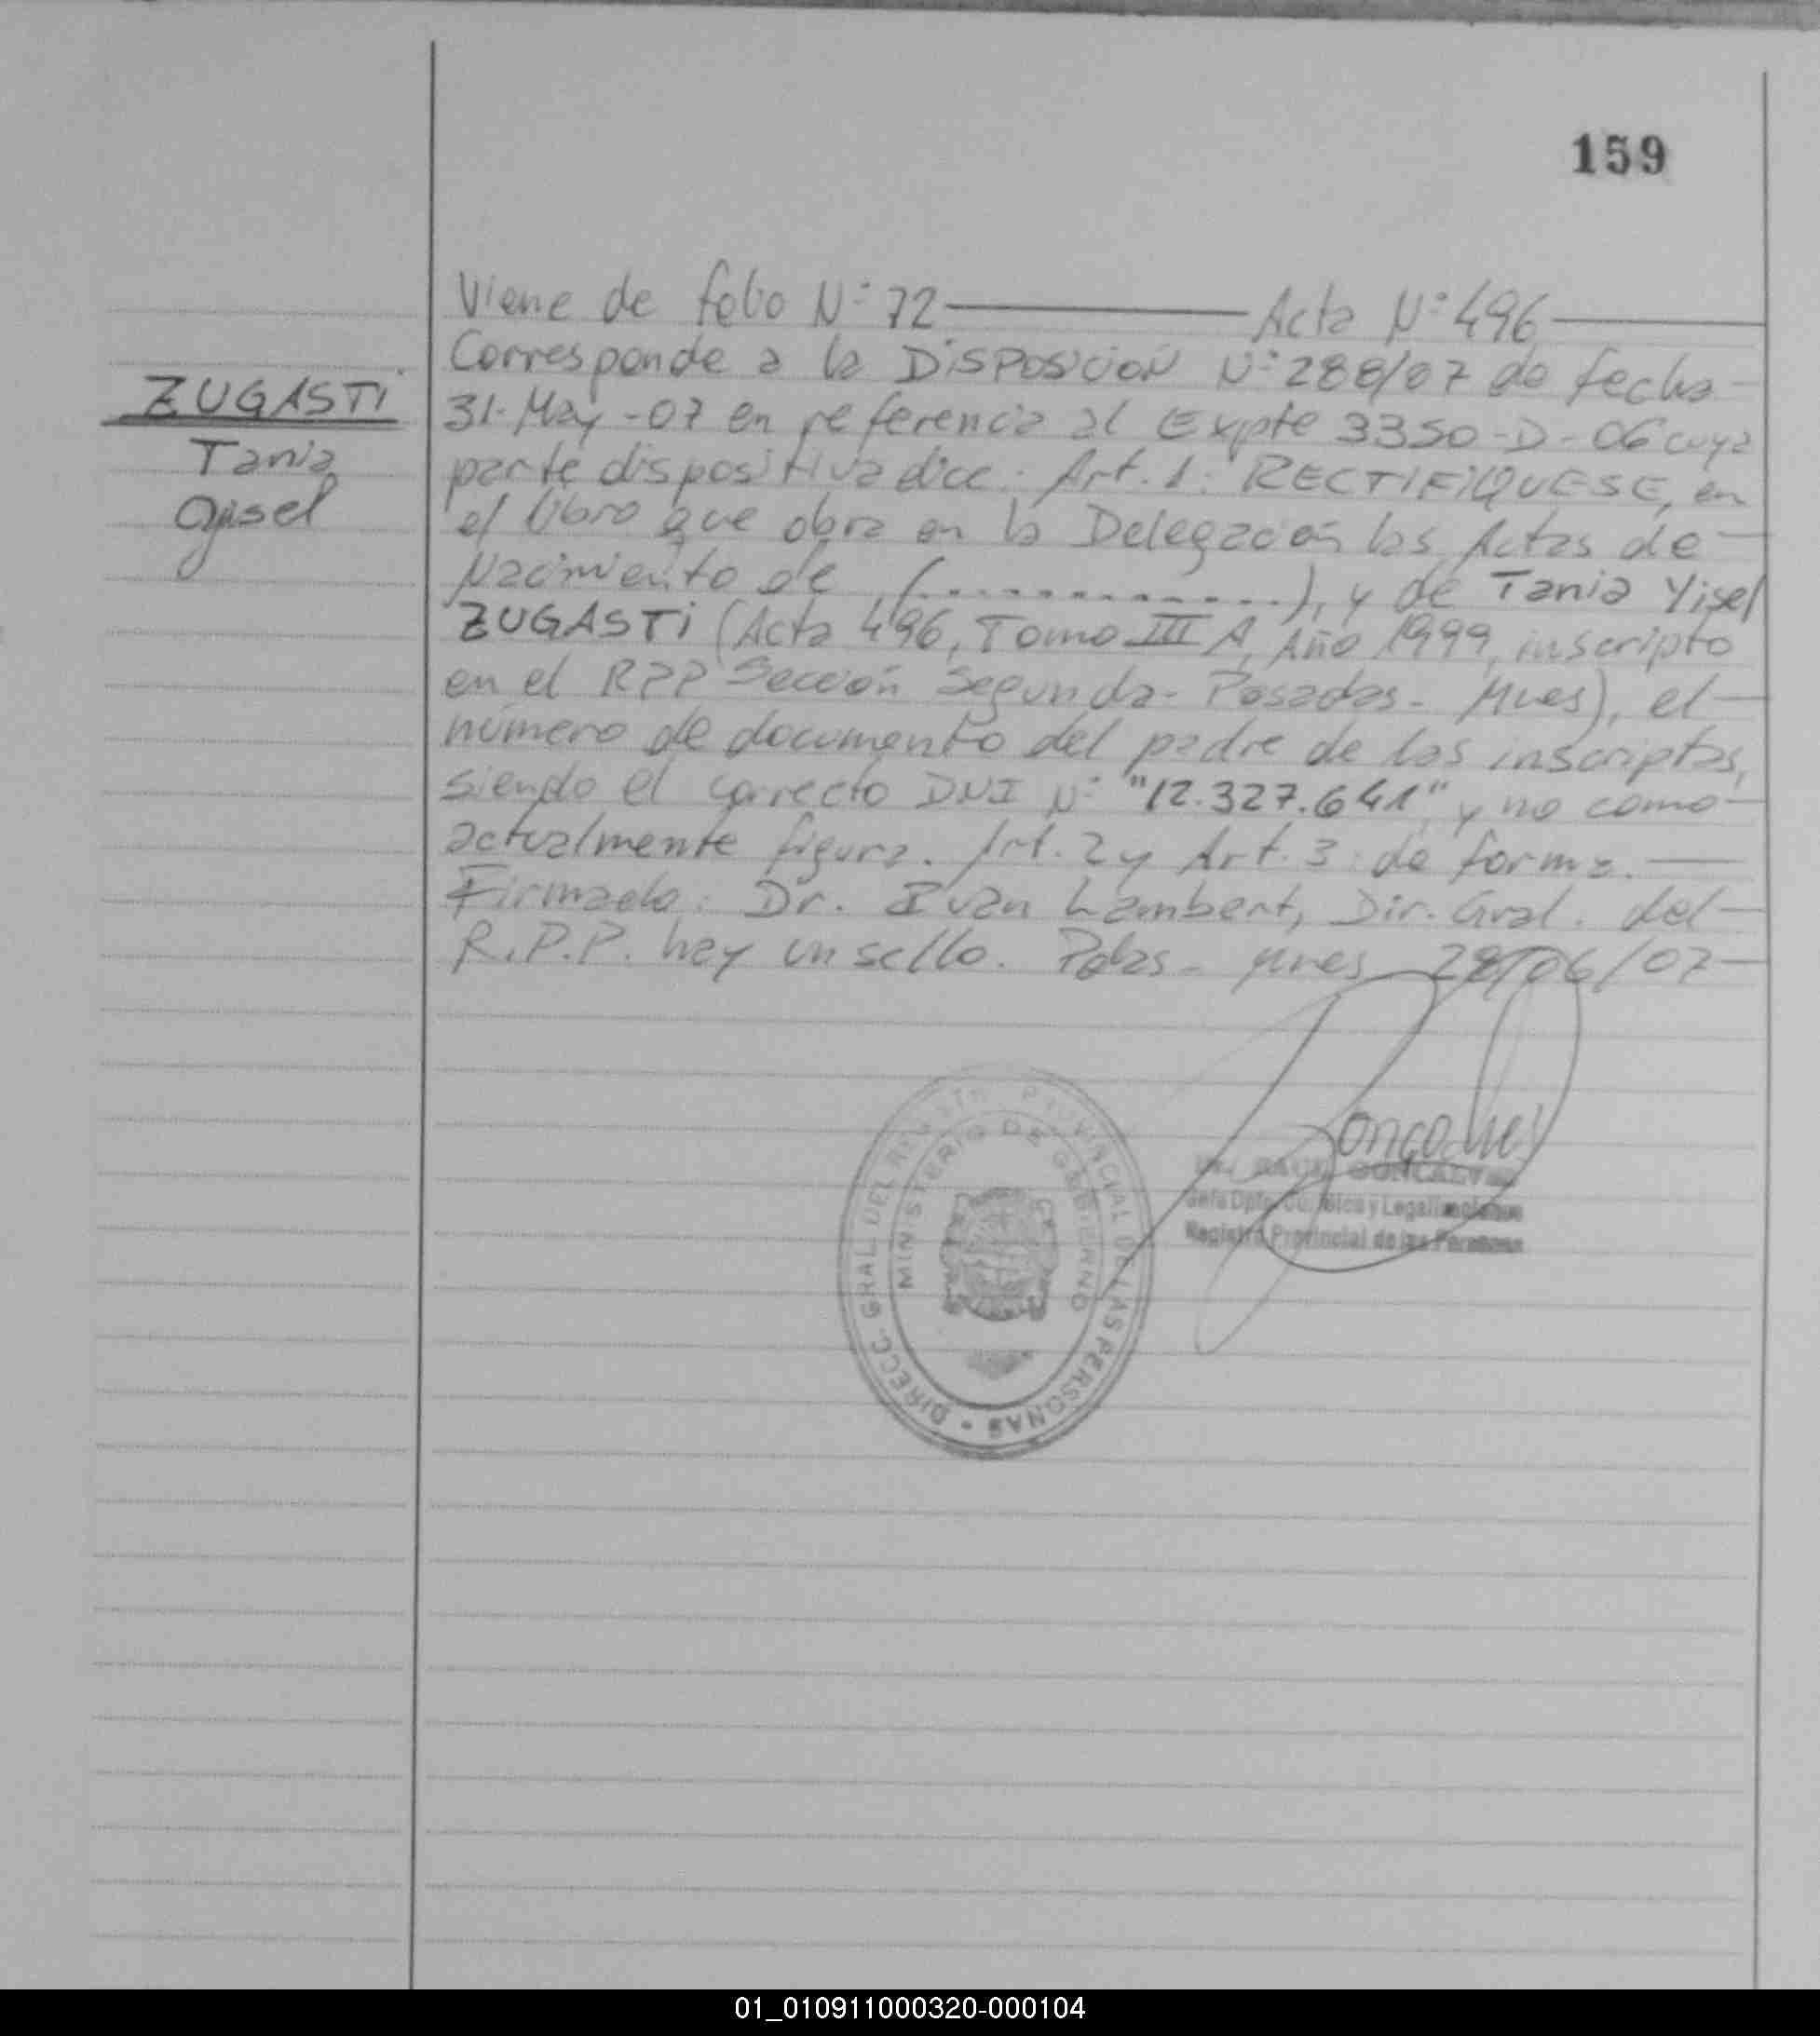 159
Viene de folio Nº 72 Acta Nº 496
Corresponde a la DISPOSICIÓN Nº 288/07 de fecha
31-May-07 en referencia al Expte 3350-D-06 cuya
parte dispositiva dice: Art. 1: RECTIFIQUESE, en
el libro que obra en la Delegación las Actas de
Nacimiento de (............), y de Tania Yisel
ZUGASTI (Acta 496, Tomo III A, Año 1999, inscripto
en el RPP Sección Segunda- Posadas- Mnes), el
número de documento del padre de las inscriptas,
siendo el correcto DNI Nº "12.327.641", y no como
actualmente figura. Art. 2 y Art. 3: de forma.
Firmado: Dr. Ivan Lambert, Dir. Gral. del
R.P.P. hay un sello. Pdas- mnes 28/06/07
ZUGASTI
Tania
DIRECC. GRAL. DEL REGISTRO PROVINCIAL DE LAS PERSONAS
MINISTERIO DE GOBIERNO
RAUL GONCALVES
Jefe Dpto. Jurídico y Legalizaciones
Registro Provincial de las Personas
01_010911000320-000104